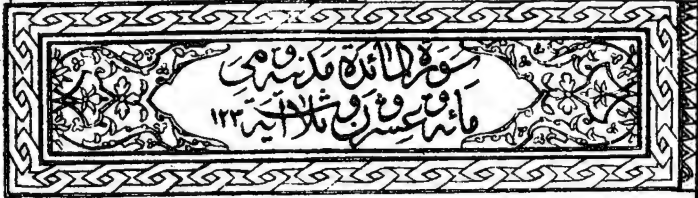 سورة المائدة مدنية وهى
مائة وعشرون وثلاث آية ١٢٣